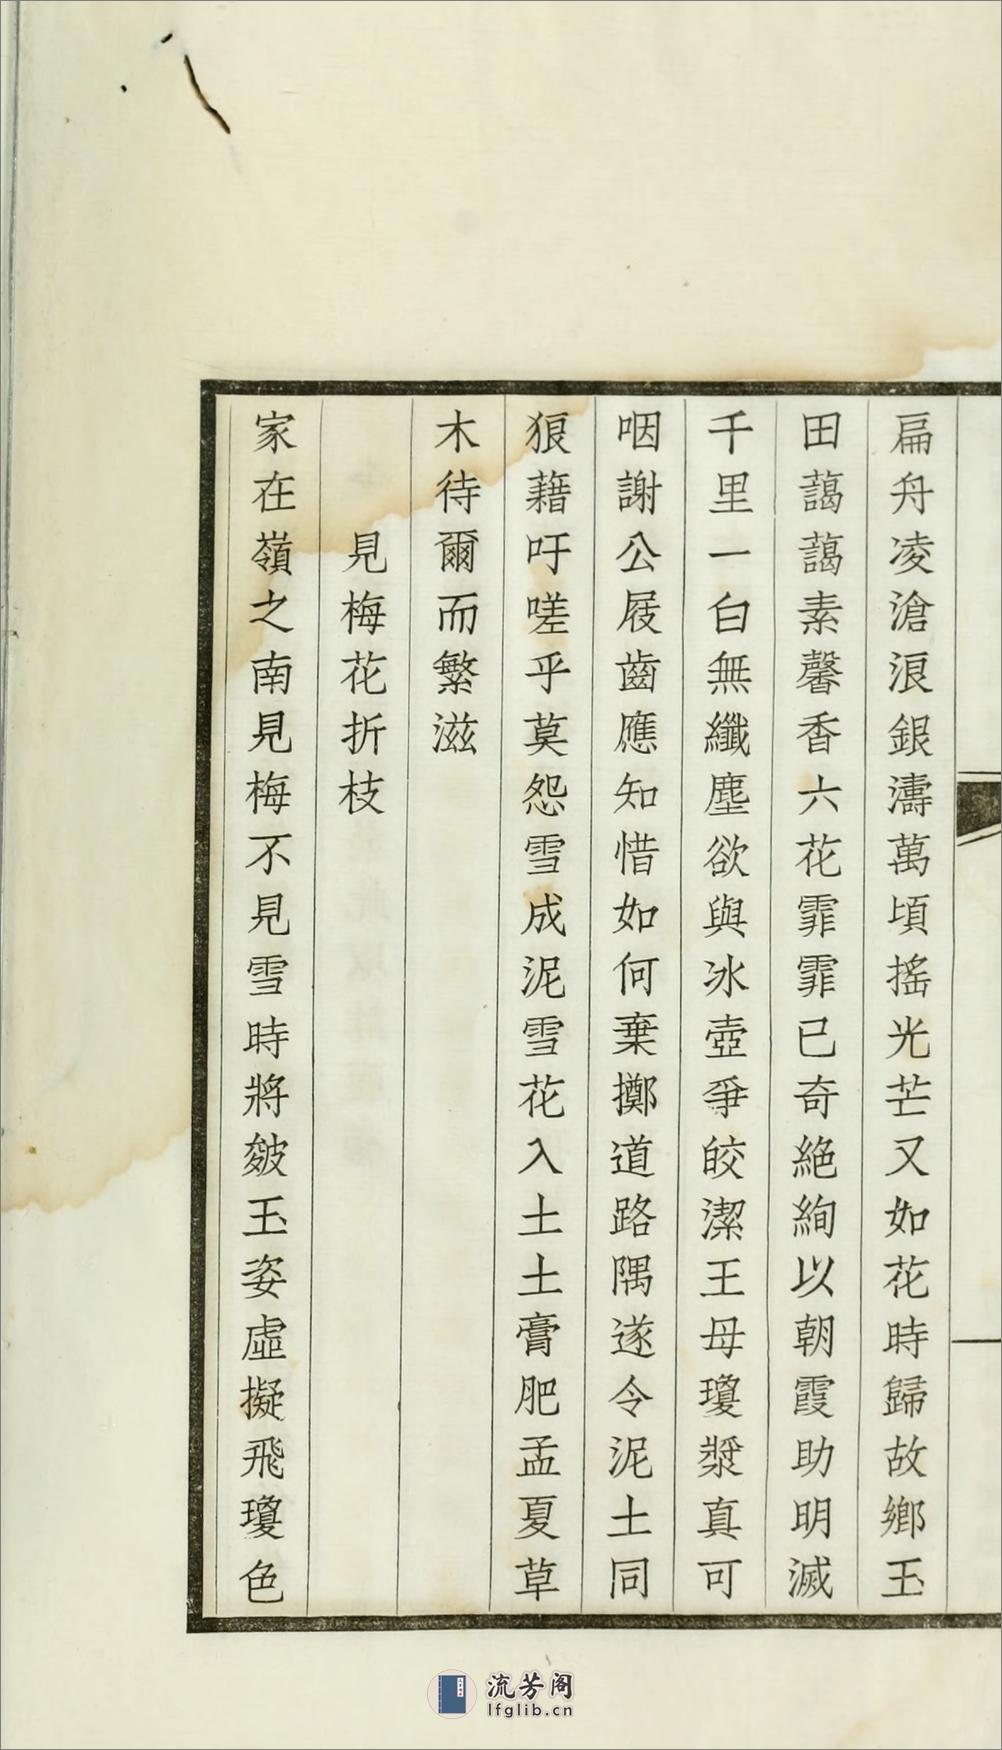 扁舟凌滄浪銀濤萬頃搖光芒又如花時歸故鄉玉
田藹藹素馨香六花霏霏已奇絕絢以朝霞助明滅
千里一白無纖塵欲與冰壺爭皎潔王母瓊漿真可
咽謝公屐齒應知惜如何棄擲道路隅遂令泥土同
狼藉吁嗟乎莫怨雪成泥雪花入土土膏肥孟夏草
木待爾而繁滋
見梅花折枝
家在嶺之南見梅不見雪時將皴玉姿虛擬飛瓊色
流芳阁
lfglib.cn